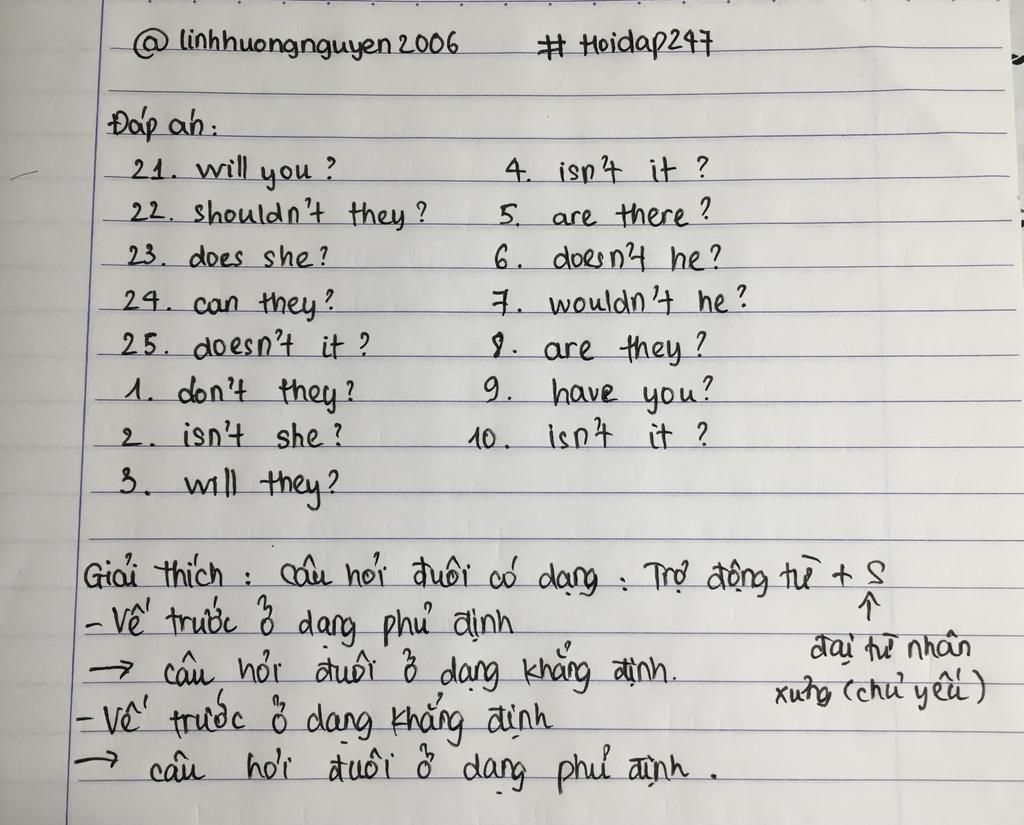 @ linhhuongnguyen2006 # Hoidap247
Đáp án:
21. will you? 4. isn't it?
22. shouldn't they? 5. are there?
23. does she? 6. doesn't he?
24. can they? 7. wouldn't he?
25. doesn't it? 8. are they?
1. don't they? 9. have you?
2. isn't she? 10. isn't it?
3. will they?
Giải thích: Câu hỏi đuôi có dạng: Trợ động từ + S
↑
- Vế trước ở dạng phủ định
đại từ nhân
→ câu hỏi đuôi ở dạng khẳng định.
xưng (chủ yếu)
- Vế trước ở dạng khẳng định
→ câu hỏi đuôi ở dạng phủ định.